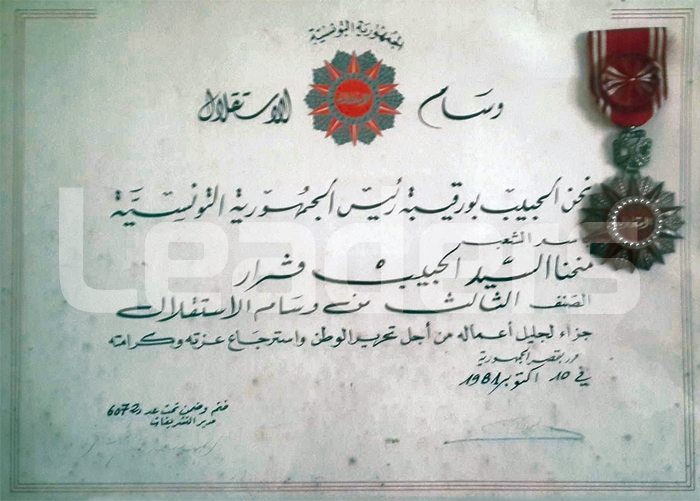 الجمهورية التونسية
وسام الاستقلال
نحن الحبيب بورقيبة رئيس الجمهورية التونسية
منحنا السيد الحبيب قرار
الصنف الثالث من وسام الاستقلال
جزاء لجليل أعماله من أجل تحرير الوطن واسترجاع عزته وكرامته
حرر بقصر الجمهورية
في 10 اكتوبر 1981
ختم وضمن تحت عدد 6072
مدير التشريفات
Leaders